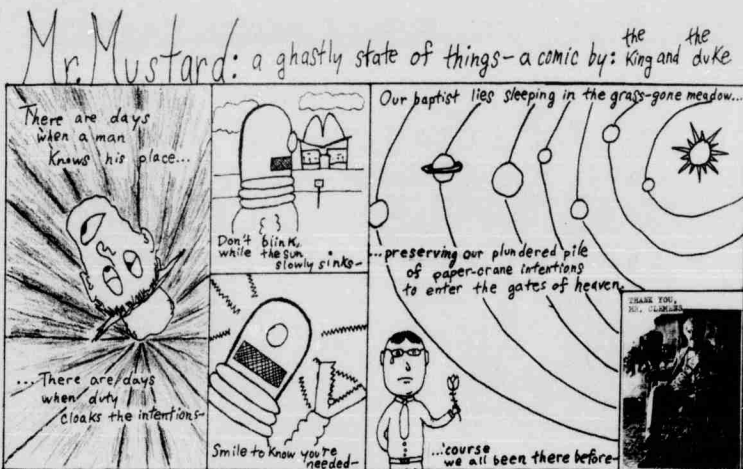 Mr. Mustard: a ghastly state of things - a comic by: the King and the duke
There are days
when a man
Knows his place...
...There are days
when duty
cloaks the intentions-
Don't blink,
while the sun
slowly sinks-
Smile to know you're
needed-
Our baptist lies sleeping in the grass-gone meadow...
...preserving our plundered pile
of paper-crane intentions
to enter the gates of heaven.
...'course
we all been there before-
THANK YOU,
MR. CLEMENS